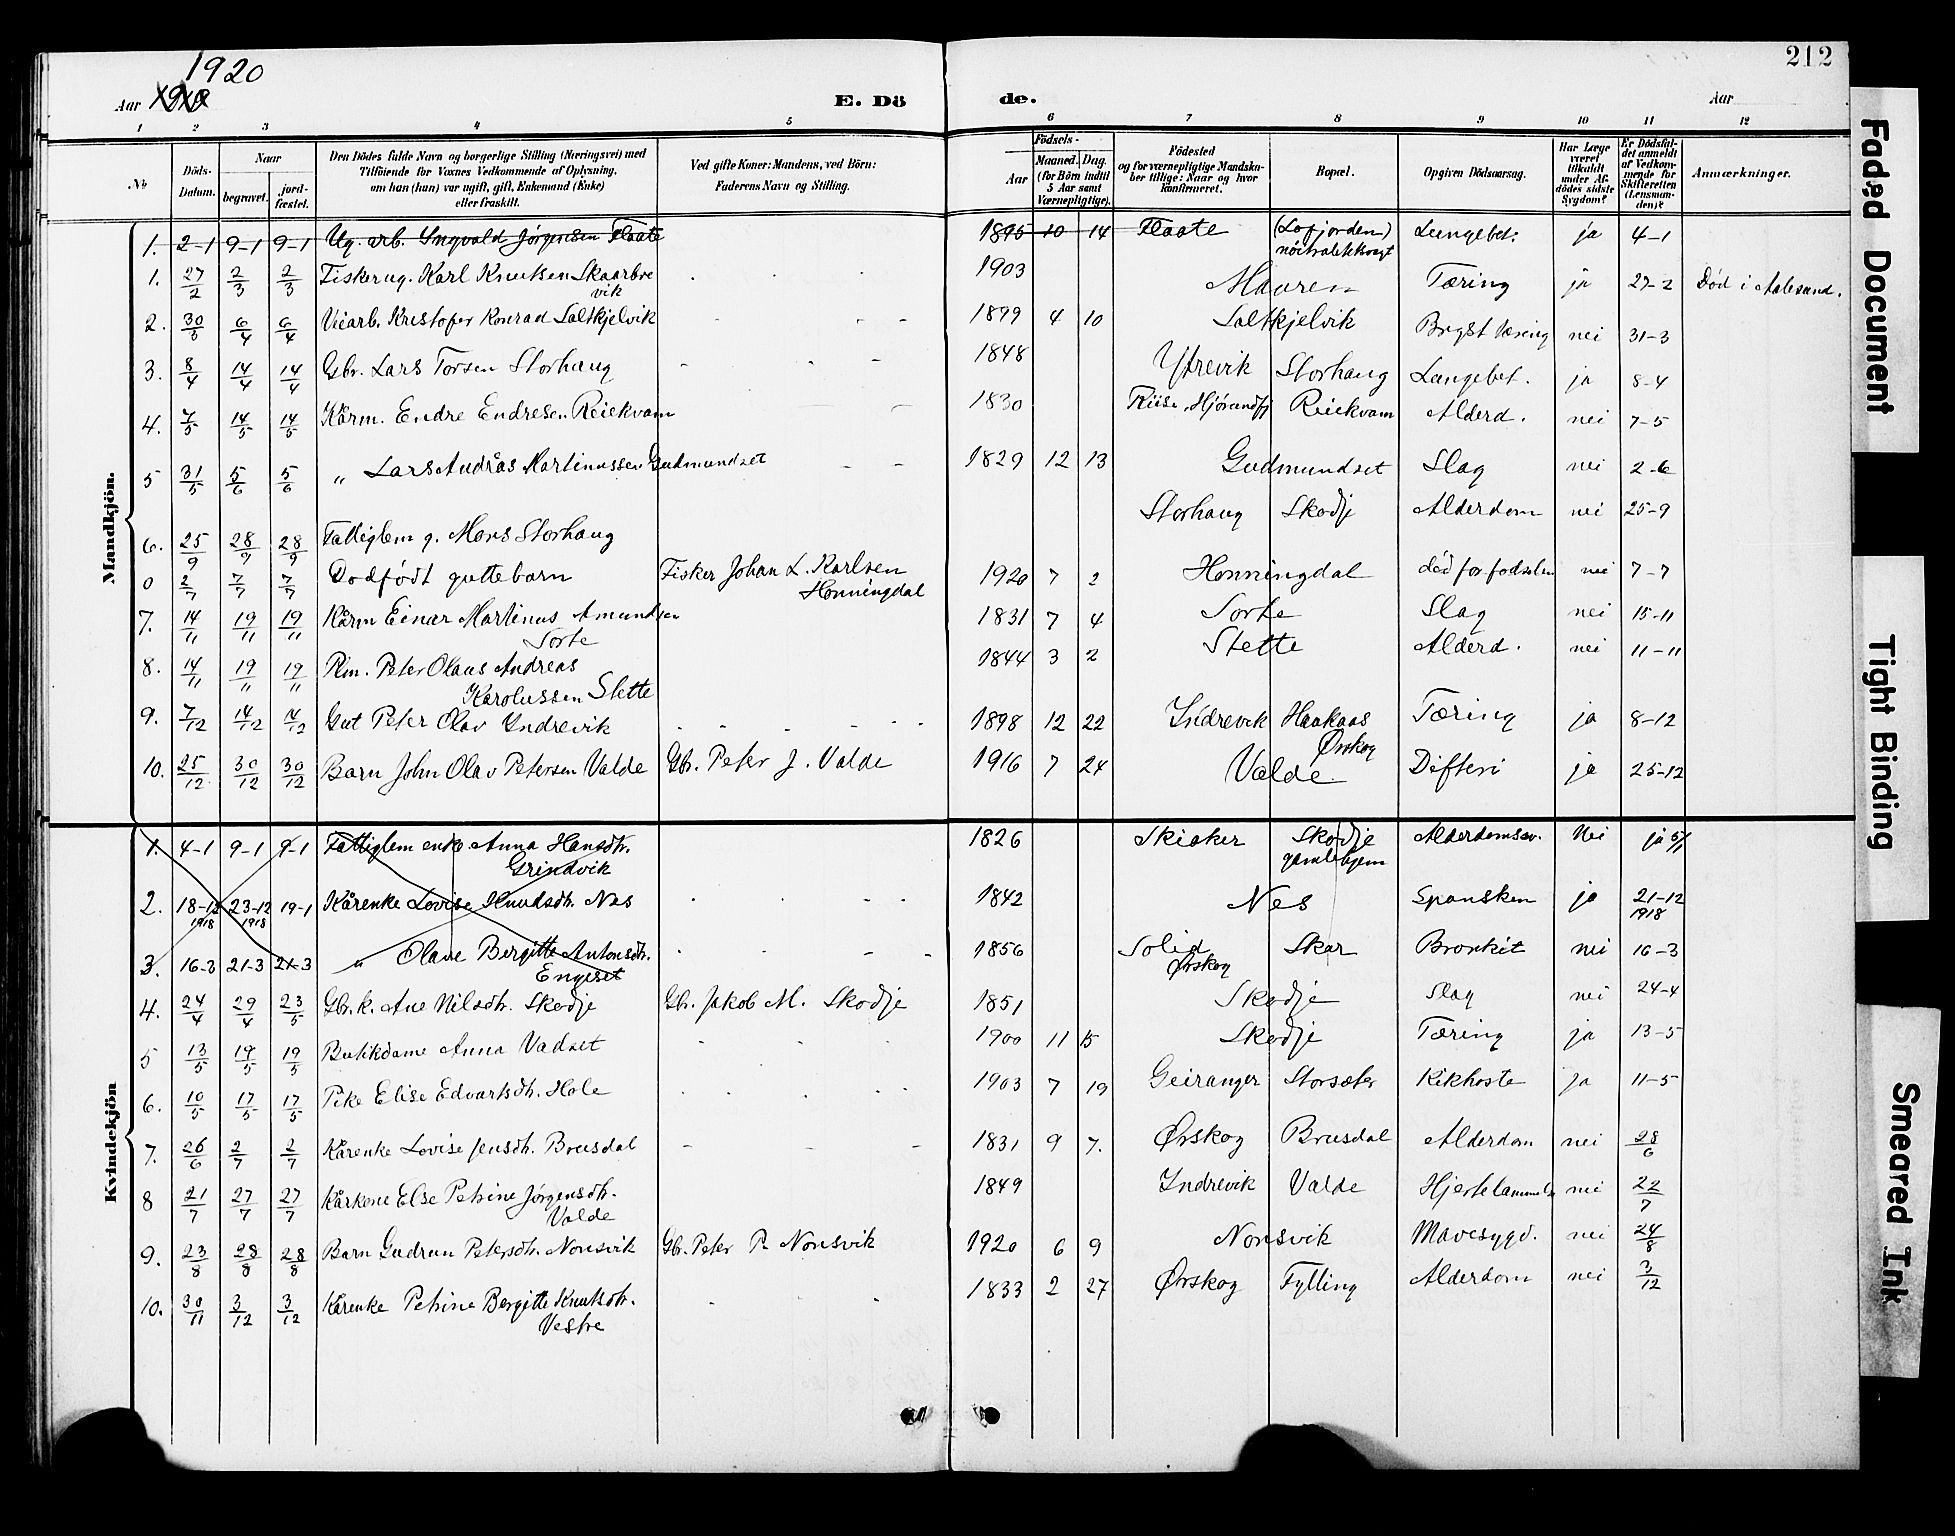 212
1920
Aar 1919
E. Dö de.
Aar
1 2 3 4 5 6 7 8 9 10 11 12
No
Döds-Datum.
Naar
begravet.
jord-fæstet.
Den Dödes fulde Navn og borgerlige Stilling (Næringsvei) med
Tilföiende for Voxnes Vedkommende af Oplysning,
om han (hun) var ugift, gift, Enkemand (Enke)
eller fraskilt.
Ved gifte Koner: Mandens, ved Börn:
Faderens Navn og Stilling.
Födsels-
Aar
Maaned. Dag.
(for Börn indtil
5 Aar samt
Værnepligtige).
Födested
og for værnepligtige Mandska-
ber tillige: Naar og hvor
konfirmeret.
Bopæl.
Opgiven Dödsaarsag.
Har Læge
været
tilkaldt
under Af-
dödes sidste
Sygdom?
Er Dödsfal-
det anmeldt
af Vedkom-
mende for
Skifteretten
(Lensman-
den)?
Anmærkninger.
Mandkjön.
1. 2-1 9-1 9-1 Ug. arb. Yngvald Jørgensen Flaate 1895 10 14 Flaate (Lofjorden) Lungebet. ja 4-1
1. 27/2 2/3 2/3 Fisker ug. Karl Knutsen Skaarbre 1903 Mauren Tæring ja 27-2 Død i Aalesund.
vik
2. 30/3 6/4 6/4 Veiarb. Kristofer Konrad Saltkjelvik 1899 4 10 Saltkjelvik Bryst tæring nei 31-3
3. 8/4 14/4 14/4 Gbr. Lars Torsen Storhaug 1848 Ytrevik Storhaug Lungebet. ja 8-4
4. 7/5 14/5 14/5 Kårm. Endre Endresen Reiekvam 1830 Riise, Hjørundfj Reiekvam Alderd. nei 7-5
5 31/5 5/6 5/6 " Lars Andreas Martinussen Gudmundset 1829 12 13 Gudmundset Slag nei 2-6
6. 25/9 28/9 28/9 Fattiglem g. Mons Storhaug Storhaug Skodje Alderdom nei 25-9
0 2/7 7/7 7/7 Dødfødt guttebarn Fisker Johan L. Karlsen 1920 7 2 Honningdal død for fødselen nei 7-7
Honningdal
7. 14/11 19/11 19/11 Kårm Einar Martinus Amundsen 1831 7 4 Sorte Slag nei 15-11
Sorte
8. 14/11 19/11 19/11 Peter Olaus Andreas 1844 3 2 Slette Alderd. nei 11-11
Karolussen Slette
9. 7/12 14/12 14/12 Gut Peter Olav Indrevik 1898 12 22 Indrevik Haakaas Tæring ja 8-12
Ørskog
10. 25/12 30/12 30/12 Barn John Olav Petersen Valde Gbr. Peter J. Valde 1916 7 24 Valde Difteri ja 25-12
Kvindekjön
1. 4-1 9-1 9-1 Fattiglem enke Anna Hansdtr. 1826 Skiaker Skodje Alderdomssv. Nei ja 5/1
Grindvik gamlehjem
2. 18-12 23-12 19-1 Kårenke Lovise Knudsdtr. Nes 1842 Nes Spansken ja 21-12
1918 1918 1918
3. 16-3 21-3 21-3 " Olave Bergitte Antonsdtr. 1856 Solid Skar Bronkit nei 16-3
Engeset Ørskog
4. 24/4 29/4 23/5 Gbr.k. Ane Nilsdtr. Skodje Gbr. Jakob M. Skodje 1851 Skodje Slag nei 24-4
5 13/5 19/5 19/5 Butikdame Anna Vadset 1900 11 15 Skodje Tæring ja 13-5
6. 10/5 17/5 17/5 Pike Elise Edvartsdtr. Hole 1903 7 19 Geiranger Storsæter Kikhoste ja 11-5
7. 26/6 2/7 2/7 Kårenke Lovise Jensdtr. Brusdal 1831 9 7. Ørskog Brusdal Alderdom nei 28/6
8 21/7 27/7 27/7 Kårkone Else Petrine Jørgensdtr. 1849 Indrevik Valde Hjertelammelse nei 22/7
Valde
9. 23/8 28/8 28/8 Barn Gudrun Petersdtr. Nonsvik Gbr. Peter P. Nonsvik 1920 6 9 Nonsvik Mavesygd. nei 24/8
10. 30/11 3/12 3/12 Kårenke Petrine Bergitte Knutsdtr. 1833 2 27 Ørskog Fylling Alderdom nei 3/12
Vestre
Faded Document
Tight Binding
Smeared Ink